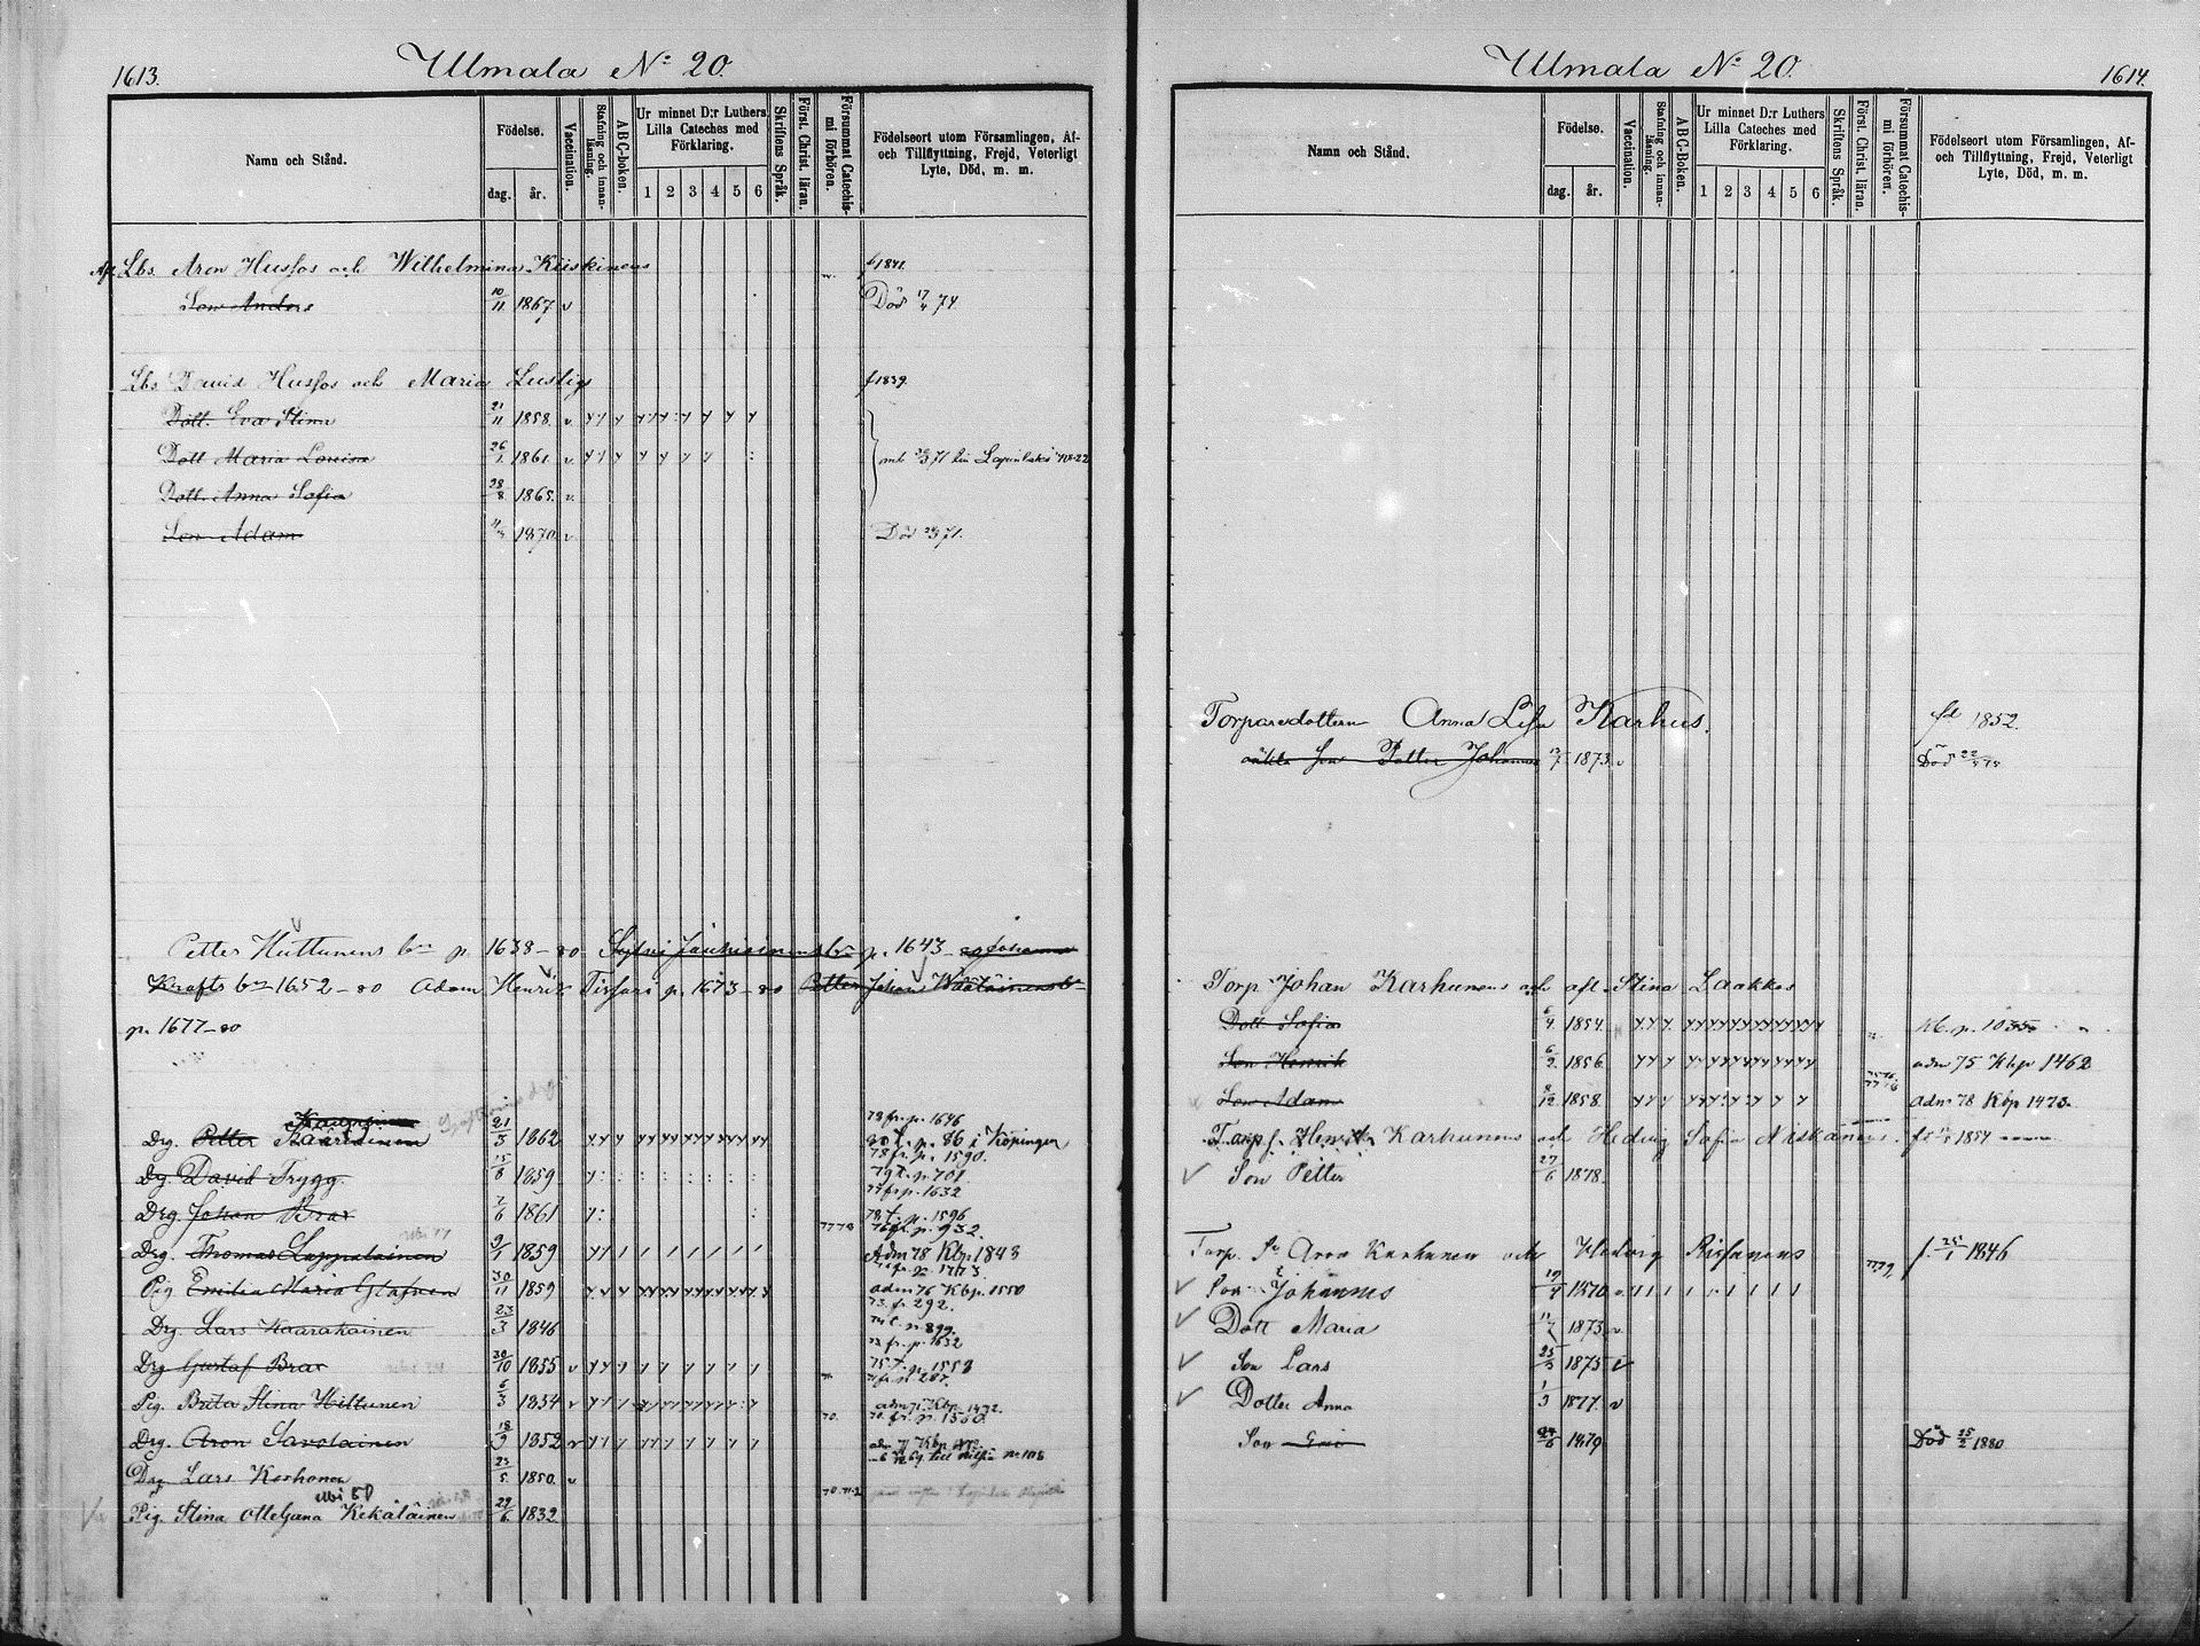 1613.
Ulmala No 20.
Namn och Stånd.
Födelse.
dag. år.
Vaccination.
Stafning och innanläsning.
ABC-boken.
Ur minnet D:r Luthers Lilla Cateches med Förklaring.
1 2 3 4 5 6
Skriftens Språk.
Först. Christ. läran.
Försummat Catechismi förhören.
Födelseort utom Församlingen, Af- och Tillflyttning, Frejd, Veterligt Lyte, Död, m. m.
Lbs. Aron Hussos och Wilhelmina Kiiskinens f 1841.
Son Anders 10/11 1867 v Död 17/4 74
Lbs David Hussos och Maria Lustigs f 1839.
Dott. Eva Stina 21/11 1858. v.
Dott Maria Lovisa 26/1. 1861. v.
Dott. Anna Sofia 28/8 1865. v.
Son Adam 1870 v Död 71.
Petter Huttunens p 1638-80 p. 1643-80 Johanna
Krafts 1652-80 Adam Henrik Tissari p. 1673-80 Petter Johan Väätäinens
p. 1677-80
Drg. Petter 21/3 1862 78 fr. p. 1646
80 t. p. 86 i Köpingen
Dg. David Trygg. 15/8 1859 78 fr. p. 1590.
79 t. p. 701
Drg. Johan Brax 7/6 1861 fr p. 1632
78 t. p. 1596
Drg. Thomas Lappalainen 9/1 1859 77 78 76 fr. p. 932.
Adm 78 Kbp 1843
Pig Emilia Maria Glasven 30/11 1859 fr. p. 1773
adm 76 Kbp. 1550
Drg. Lars Kaarakainen 23/3 1846 73. fr 292.
74 t. p. 899.
Drg Gustaf Brax 30/10 1855 v 73 fr. p. 1632
75 t. p. 1553
Pig. Brita Stina Hiltunen 6/3 1854 v fr p. 287.
adm 71 Kbp 1472.
Drg. Aron Savolainen 18/9 1852 v 70. 70. fr. p. 1560
Drg Lars Korhonen 23/5. 1850. v
Pig. Stina Otteljana Kekäläinen 29/6. 1832. 70.71.2
1614.
Ulmala No 20.
Namn och Stånd.
Födelse.
dag. år.
Vaccination.
Stafning och innanläsning.
ABC-Boken.
Ur minnet D:r Luthers Lilla Cateches med Förklaring.
1 2 3 4 5 6
Skriftens Språk.
Först. Christ. läran.
Försummat Catechismi förhören.
Födelseort utom Församlingen, Af- och Tillflyttning, Frejd, Veterligt Lyte, Död, m. m.
Torparedottern Anna Lisa Karhus. fd 1852.
oäkta son Petter Johannes 1873 v Död 22/5 75
Torp Johan Karhunens och afl. Stina Laakkos
Dott Sofia 6/4. 1854. Kb. p. 1035
Son Henrik 6/2. 1856 adm 75 Kbp 1462
Son Adam 8/12 1858 adm 78 Kbp 1473.
Torp s. Henrik Karhunens och Hedvig Sofia Niskanens. 1854
Son Petter 27/6 1878.
Torp. Sn Aron Karhunen och Hedvig Rissanens f. 25/1 1846
Son Johannes 19/7 1870 v. 77.79.
Dott Maria 1873 v.
Son Lars 1875 v
Dotter Anna 1/3 1877. v
Son 1879 Död 15/2 1880